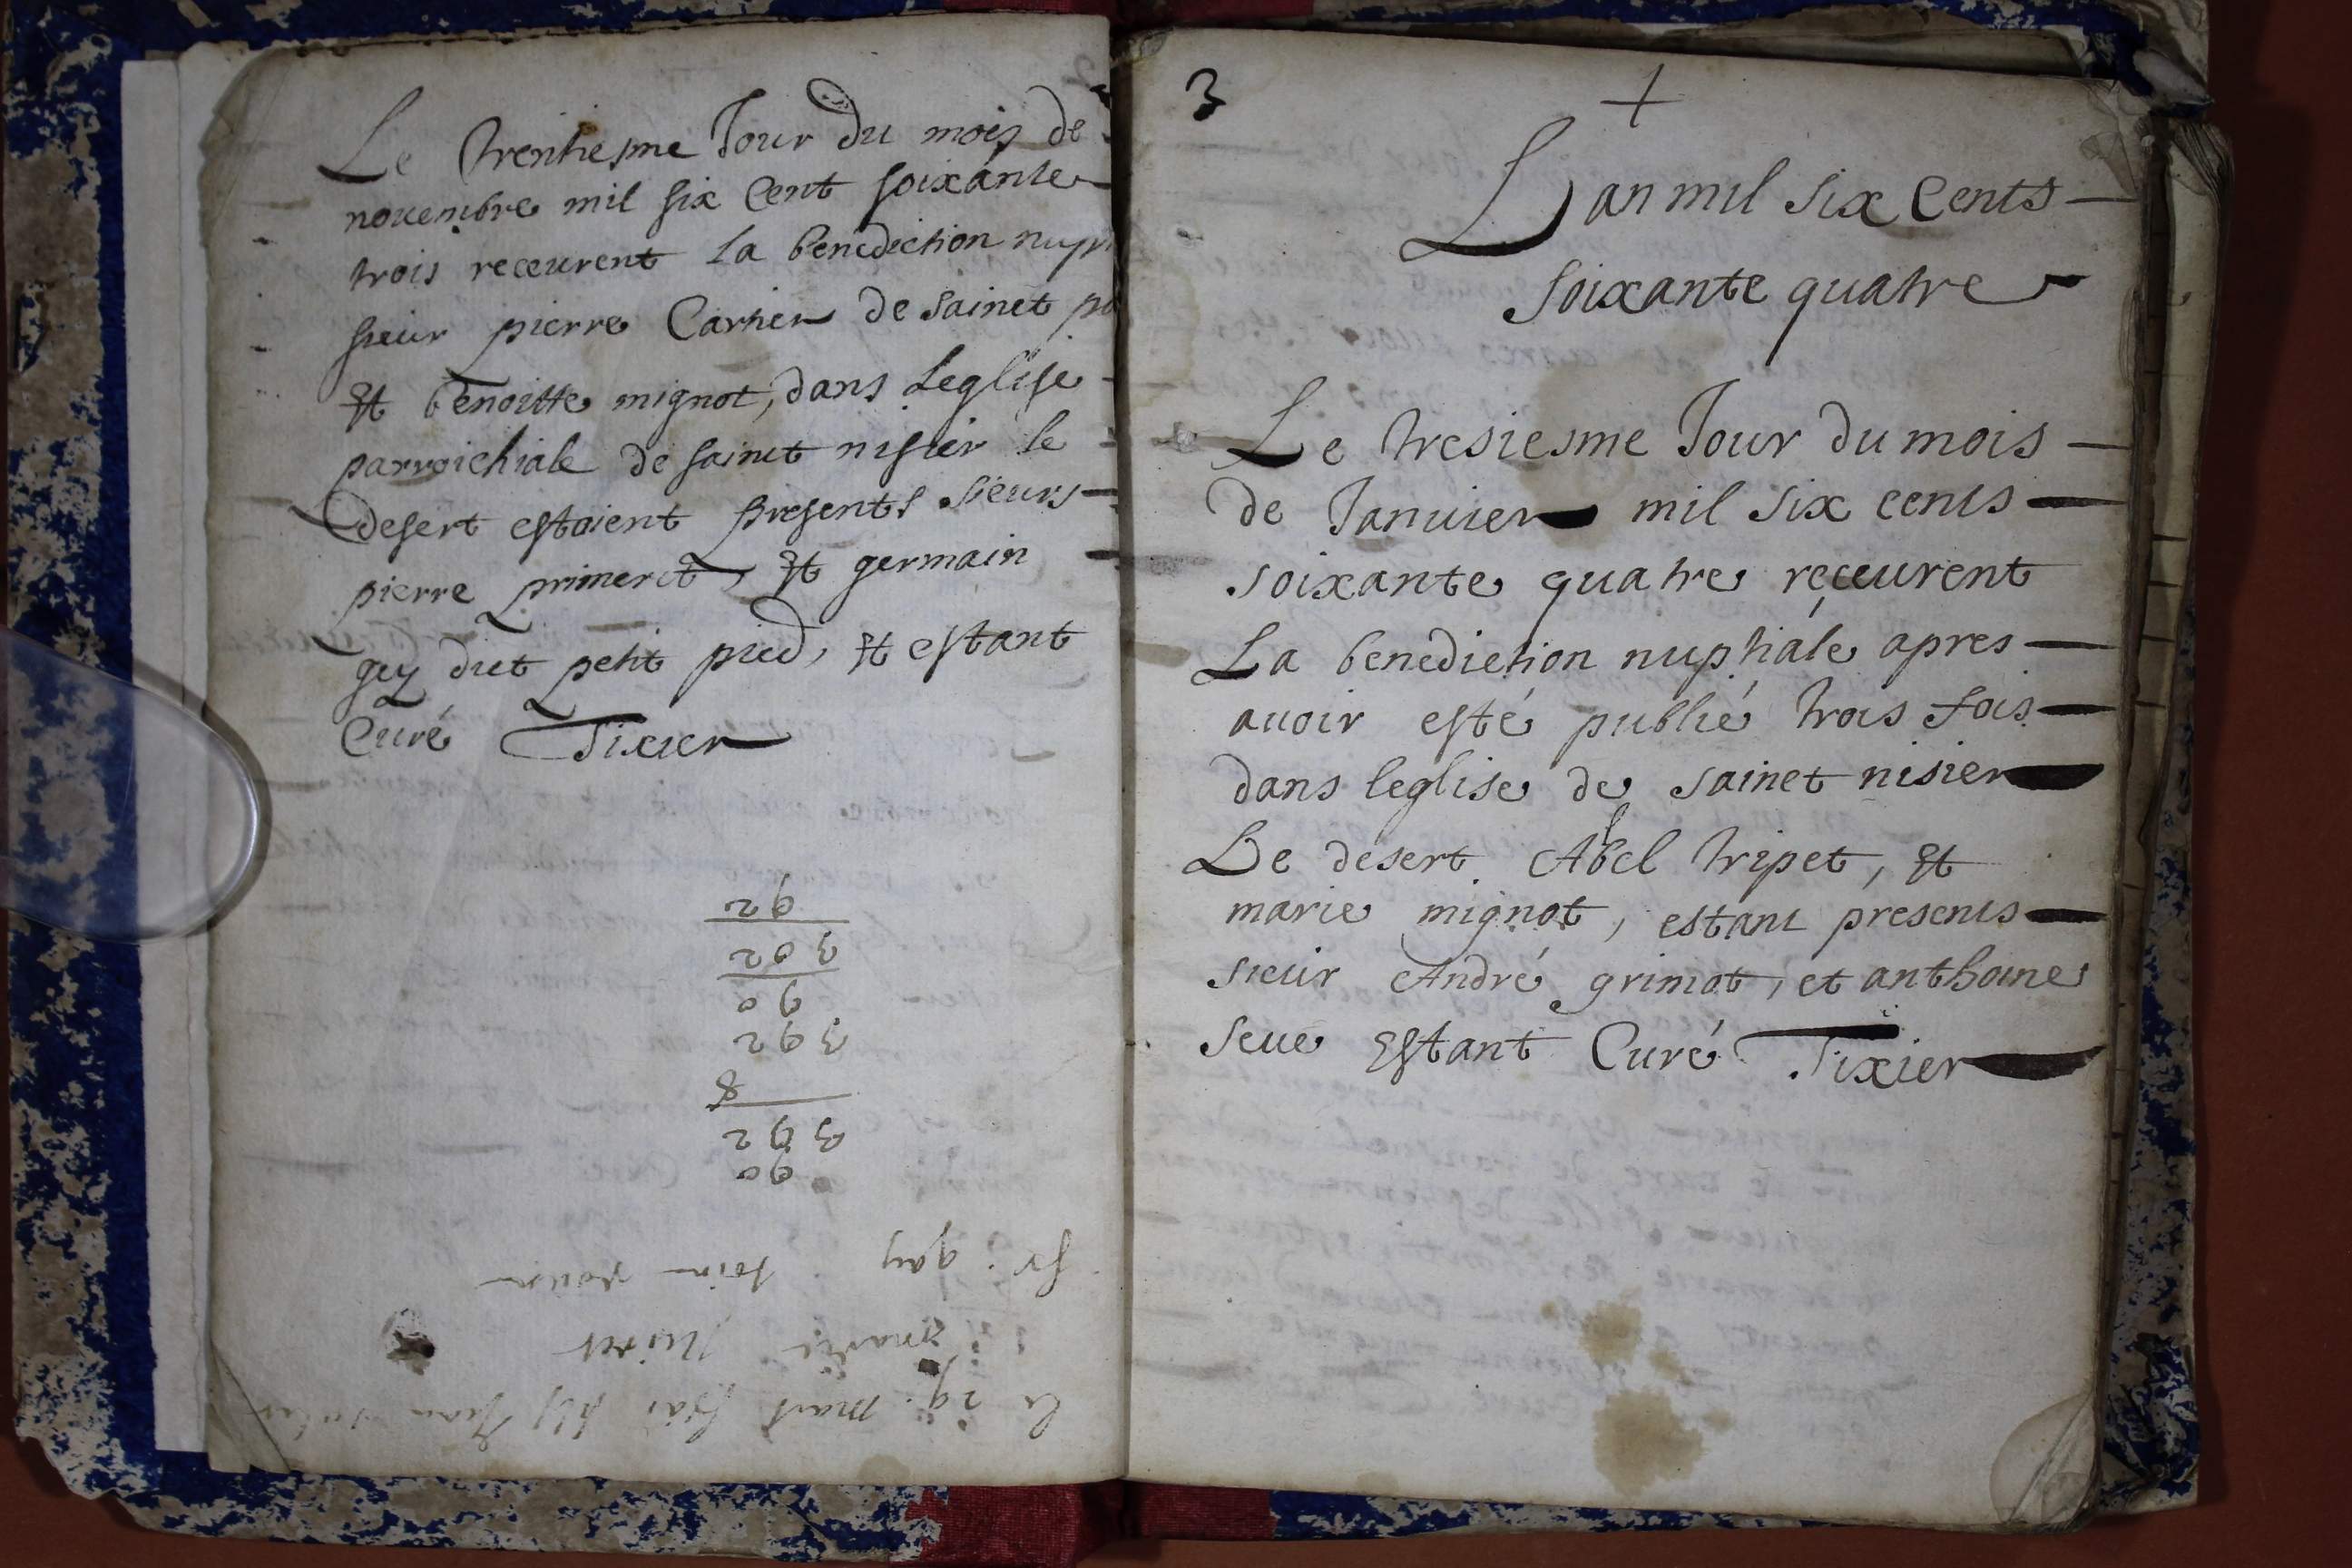 Le trentiesme Jour du mois de
nouembre mil six Cent soixante
trois receurent la benediction nup
sieur pierre Cartier de sainct
Et benoitte mignot, dans Leglise
parroichiale de sainct nisier le
desert estoient presents sieurs
pierre primeret, Et germain
gey dict petit pied, Et estant
Curé Tixier
92
302
90
392
8
392
90
gay
marie
le 29 mart
3
+
Lan mil six Cents
soixante quatre
Le tresiesme Jour du mois
de Januier mil six cents
soixante quatre receurent
La benediction nuptiale apres
auoir esté publié trois fois
dans leglise de sainct nisier
Le desert Abel tripet, Et
marie mignot, estant presents
sieur André grimot, et anthoine
seue Estant Curé Tixier